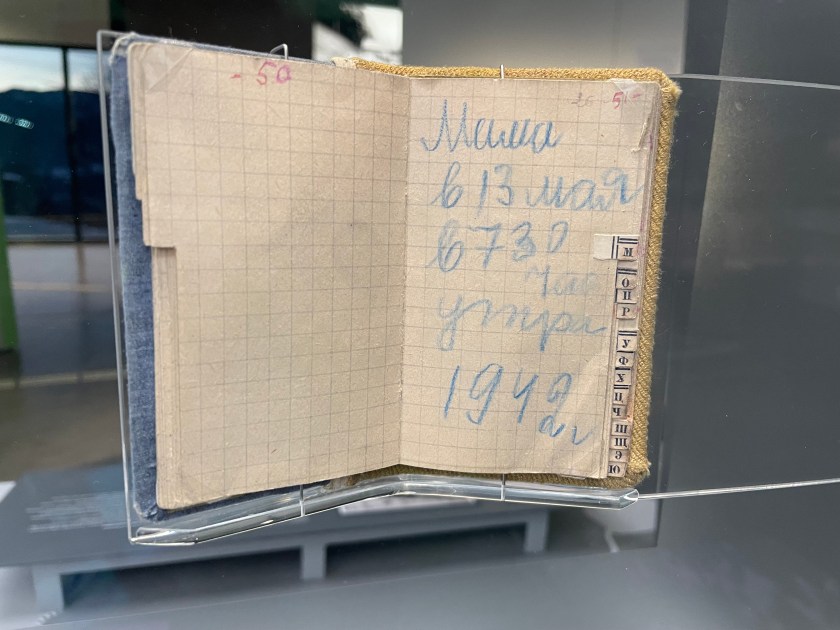 - 50
50 -
Мама
в 13 мая
в 7 30
час
утра
1942 г
М
О
П
Р
У
Ф
Х
Ц
Ч
Ш
Щ
Э
Ю